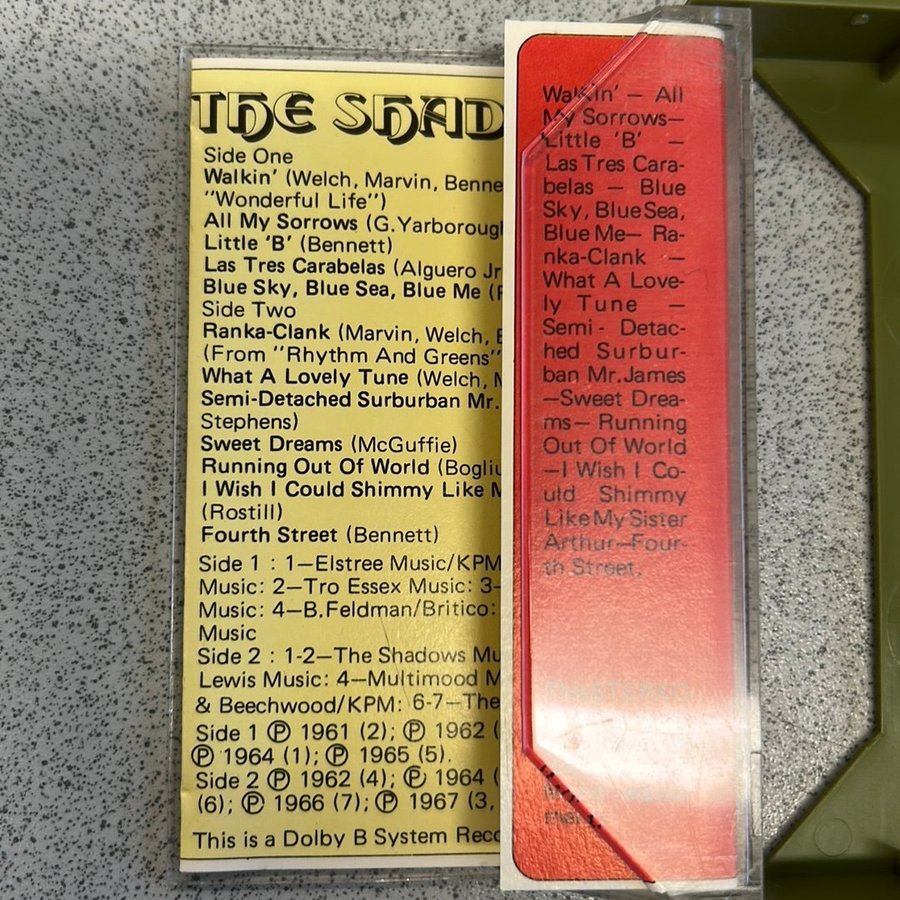 THE SHAD
Side One
Walkin' (Welch, Marvin, Benne
"Wonderful Life")
All My Sorrows (G.Yarborough
Little 'B' (Bennett)
Las Tres Carabelas (Alguero Jr
Blue Sky, Blue Sea, Blue Me (
Side Two
Ranka-Clank (Marvin, Welch, B
(From "Rhythm And Greens"
What A Lovely Tune (Welch, M
Semi-Detached Surburban Mr.
Stephens)
Sweet Dreams (McGuffie)
Running Out Of World (Bogliu
I Wish I Could Shimmy Like M
(Rostill)
Fourth Street (Bennett)
Side 1 : 1—Elstree Music/KPM
Music: 2—Tro Essex Music: 3-
Music: 4—B.Feldman/Britico:
Music
Side 2 : 1-2—The Shadows Mu
Lewis Music: 4—Multimood M
& Beechwood/KPM: 6-7—The
Side 1 ℗ 1961 (2); ℗ 1962 (
℗ 1964 (1); ℗ 1965 (5).
Side 2 ℗ 1962 (4); ℗ 1964 (
(6); ℗ 1966 (7); ℗ 1967 (3,
This is a Dolby B System Reco
Walkin' — All
My Sorrows—
Little 'B' —
Las Tres Cara-
belas — Blue
Sky, Blue Sea,
Blue Me— Ra-
nka-Clank —
What A Love-
ly Tune —
Semi- Detac-
hed Surbur-
ban Mr.James
—Sweet Drea-
ms— Running
Out Of World
—I Wish I Co-
uld Shimmy
Like My Sister
Arthur—Four-
th Street.